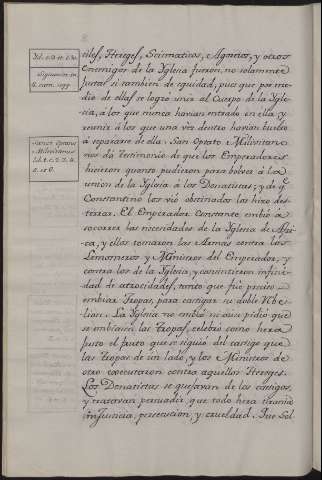 tiles, Hereges, Scismaticos, Agoreros, y otros
Enemigos de la Yglesia fueron, no solamente
Justas si tambien de equidad, pues que por me-
dio de ellas se logro unir al Cuerpo de la Ygle-
sia, á los que nunca havian entrado en ella y
reunir á los que una vez dentro havian buelto
a separarse de ella. San Optato Milevitano
nos da testimonio de que los Emperadores
hicieron quanto pudieron para bolver á la
union de la Yglesia á los Donatistas, y de q.e
Constantino los vió obstinados los hizo des-
terrar. El Emperador Constante embió á
socorrer las necesidades de la Yglesia de Afri-
ca, y ellos tomaron las Armas contra los
Limosneros y Ministros del Emperador, y
contra los de la Yglesia, y cometieron infini-
dad de atrocidades, tanto que fué preciso
embiar Tropas, para castigar su doble Rebe-
lion. La Yglesia no embió ni aun pidió que
se embiasen las Tropas, celebró como hera
Justo el fruto que se siguió del castigo que
las Tropas de un lado, y los Ministros de
otro executaron contra aquellos Hereges.
Los Donatistas se quejavan de los castigos,
y tratavan persuadir que todo hera tirania
injusticia, persecucion, y crueldad. Que Sol